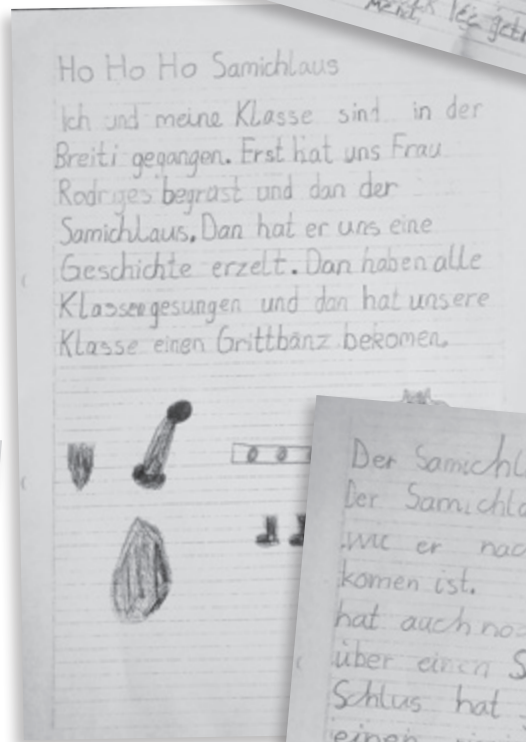 Ment
Ho Ho Ho Samichlaus
Ich und meine Klasse sind in der
Breiti gegangen. Erst hat uns Frau
Rodriges begrüst und dan der
Samichlaus. Dan hat er uns eine
Geschichte erzelt. Dan haben alle
Klassen gesungen und dan hat unsere
Klasse einen Grittbänz bekomen.
Der Samichl
Der Samichla
wie er nac
komen ist.
hat auch no
über einen S
Schlus hat
einen